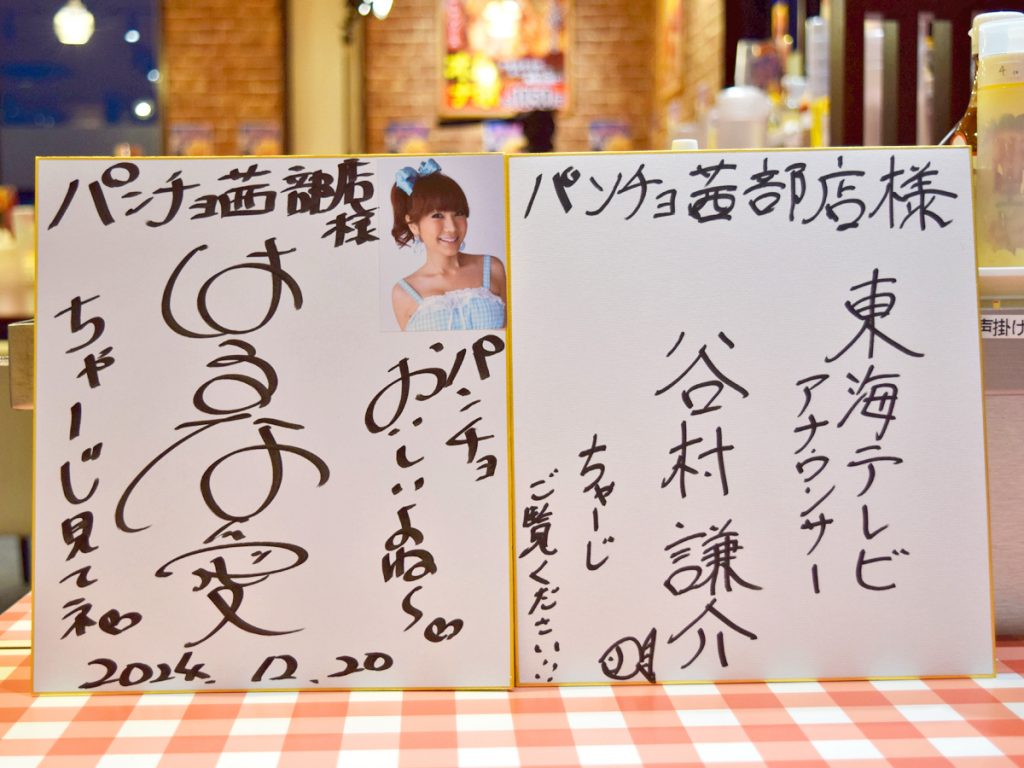 パンチョ茜部店様
パンチョ
おいしいよね〜♡
はるな愛
ちゃーじ見てネ♡
2024.12.20
パンチョ茜部店様
東海テレビ
アナウンサー
谷村謙介
ちゃーじ
ご覧ください!!
声掛け